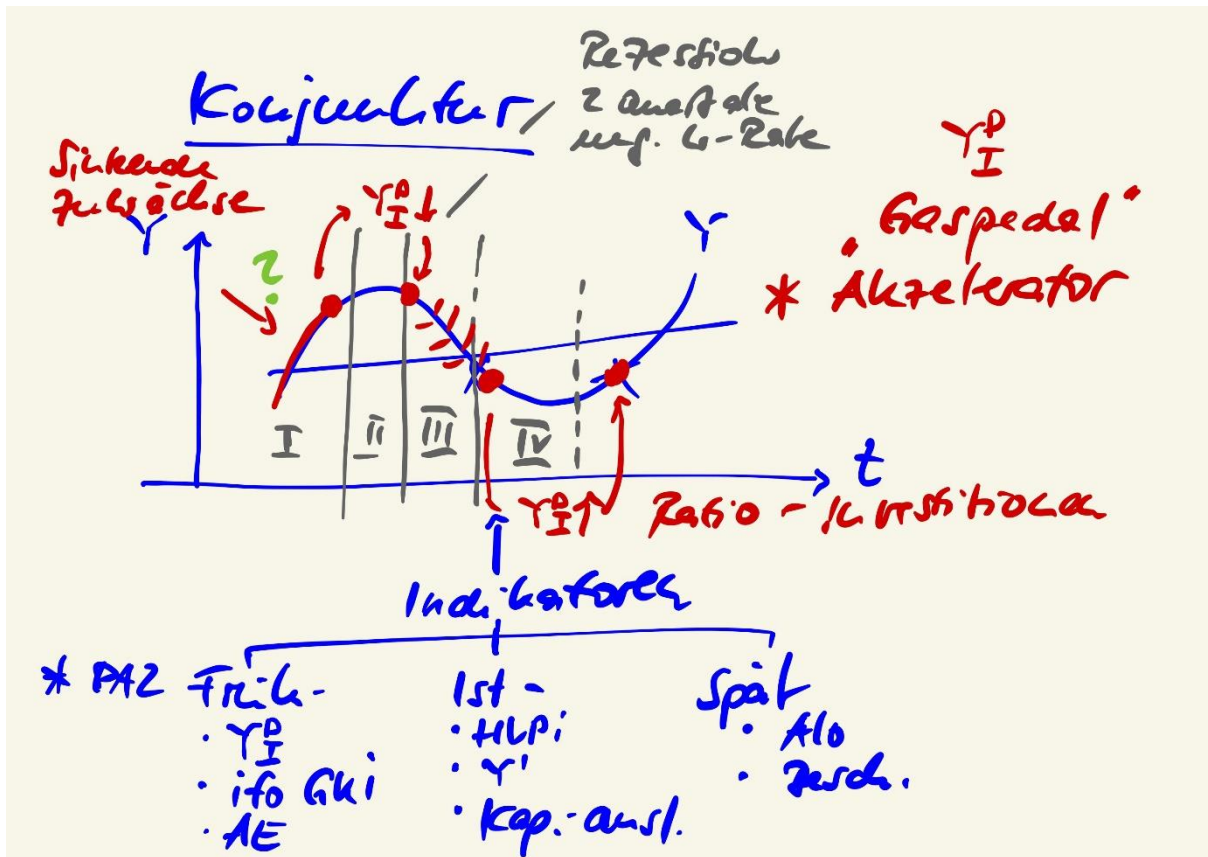 Konjunktur
Rezession
2 Quartale
neg. W-Rate
Sinkende
Zuwächse
Y
?
Y^D_I ↓
Y
Y^D_I
"Gaspedal"
* Akzelerator
I
II
III
IV
t
Y^D_I ↑
Ratio - Investitionen
Indikatoren
* PA2
Früh-
· Y^D_I
· ifo GKI
· AE
Ist -
· HVPi
· Y'
· Kap.-ausl.
Spät
· Alo
· Besch.